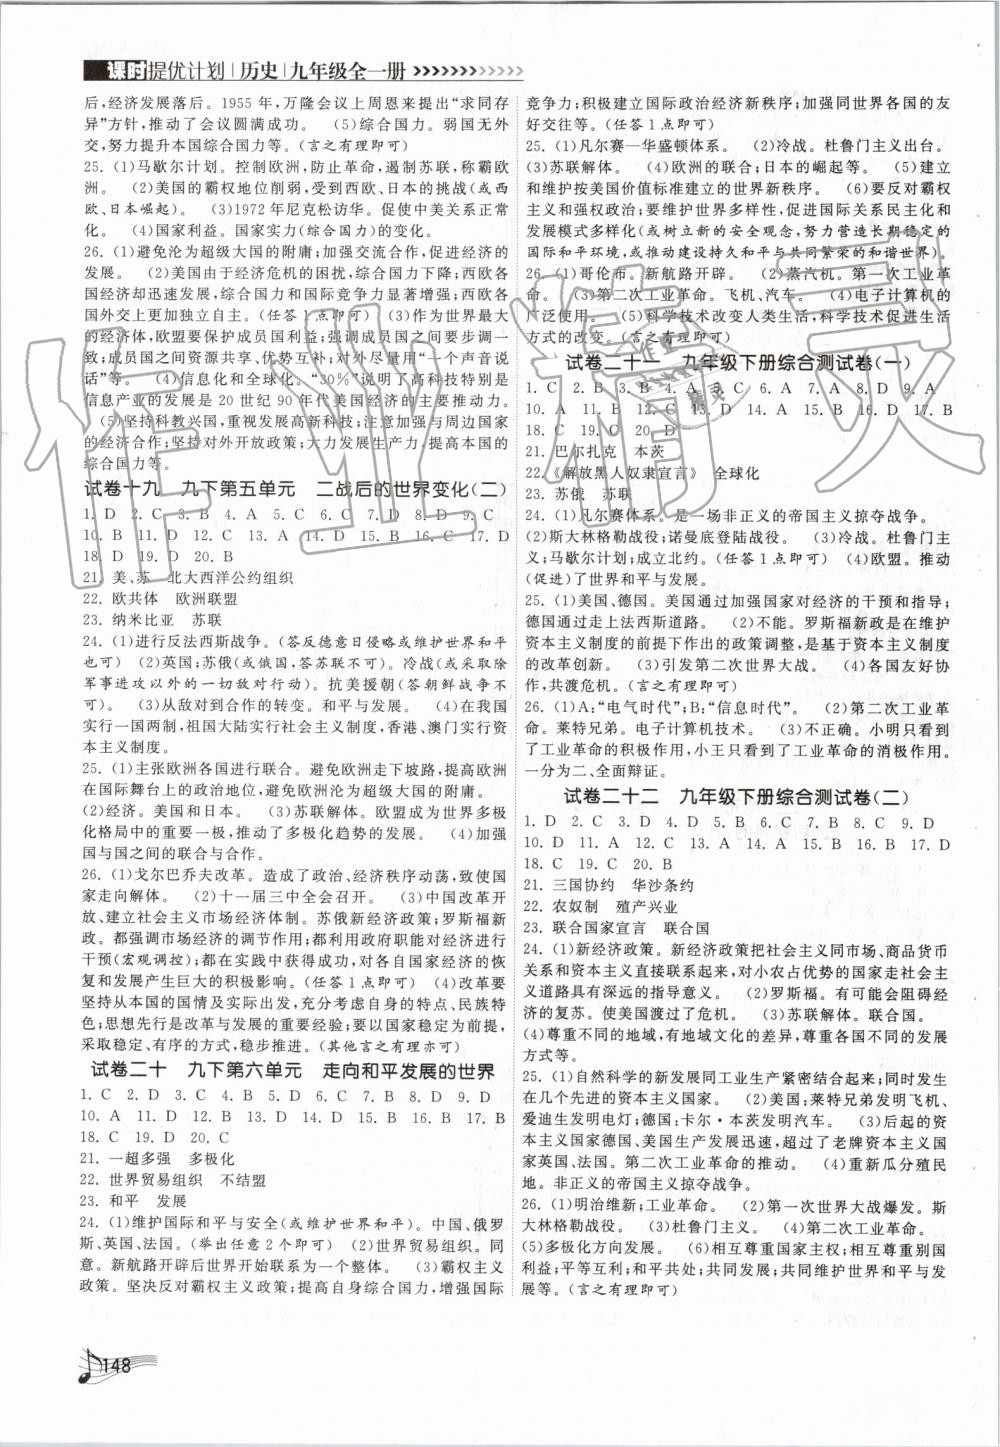 课时提优计划|历史|九年级全一册
后,经济发展落后。1955 年,万隆会议上周恩来提出“求同存
异”方针,推动了会议圆满成功。 (5)综合国力。弱国无外
交,努力提升本国综合国力等。(言之有理即可)
25. (1)马歇尔计划。控制欧洲,防止革命,遏制苏联,称霸欧
洲。 (2)美国的霸权地位削弱,受到西欧、日本的挑战(或西
欧、日本崛起)。 (3)1972 年尼克松访华。促使中美关系正常
化。 (4)国家利益。国家实力(综合国力)的变化。
26. (1)避免沦为超级大国的附庸;加强交流合作,促进经济的
发展。 (2)美国由于经济危机的困扰,综合国力下降;西欧各
国经济却迅速发展,综合国力和国际竞争力显著增强;西欧各
国外交上更加独立自主。(任答1点即可) (3)作为世界最大
的经济体,欧盟要保护成员国利益;强调成员国之间要步调一
致;成员国之间资源共享、优势互补、对外要“用一个声音说
话”等。 (4)信息化和全球化。“30%”说明了高科技特别是
信息产业的发展是 20 世纪 90 年代美国经济的主要推动力。
(5)坚持科教兴国,重视发展高新科技;注意加强与周边国家
的经济合作;坚持对外开放政策;大力发展生产力,提高本国的
综合国力等。
试卷十九 九下第五单元 二战后的世界变化(二)
1. D 2. C 3. B 4. A 5. C 6. C 7. D 8. D 9. C
10. B 11. D 12. C 13. A 14. D 15. B 16. C 17. D
18. D 19. D 20. B
21. 美、苏 北大西洋公约组织
22. 欧共体 欧洲联盟
23. 纳米比亚 苏联
24. (1)进行反法西斯战争。(答反德意日侵略或维护世界和平
也可) (2)英国;苏俄(或俄国,答苏联不可)。冷战(或采取除
军事进攻以外的一切敌对行动)。抗美援朝(答朝鲜战争不
可)。 (3)从敌对到合作的转变。和平与发展。 (4)在我国
实行一国两制,祖国大陆实行社会主义制度,香港、澳门实行资
本主义制度。
25. (1)主张欧洲各国进行联合。避免欧洲走下坡路,提高欧洲
在国际舞台上的政治地位,避免欧洲沦为超级大国的附庸。
(2)经济。美国和日本。 (3)苏联解体。欧盟成为世界多极
化格局中的重要一极,推动了多极化趋势的发展。 (4)加强
国与国之间的联合与合作。
26. (1)戈尔巴乔夫改革。造成了政治、经济秩序动荡,致使苏联
国家走向解体。 (2)十一届三中全会召开。 (3)中国改革开
放、建立社会主义市场经济体制。苏俄新经济政策;罗斯福新
政。都强调市场经济的调节作用;都利用政府职能对经济进行
干预(宏观调控);都在实践中获得成功,对各自国家经济的恢
复和发展产生巨大的积极影响。(任答1点即可) (4)改革要
坚持从本国的国情及实际出发,充分考虑自身的特点、民族特
色;思想先行是改革与发展的重要经验;要以国家稳定为前提,
采取稳定、有序的方式,稳步推进。(其他言之有理亦可)
试卷二十 九下第六单元 走向和平发展的世界
1. C 2. D 3. C 4. B 5. D 6. C 7. B 8. D 9. D
10. A 11. D 12. D 13. B 14. C 15. D 16. B 17. B
18. C 19. D 20. C
21. 一超多强 多极化
22. 世界贸易组织 不结盟
23. 和平 发展
24. (1)维护国际和平与安全(或维护世界和平)。中国、俄罗
斯、英国、法国。(举出任意2个即可) (2)世界贸易组织。同
意。新航路开辟后世界开始联系为一个整体。 (3)霸权主义
政策。坚决反对霸权主义政策;提高自身综合国力,增强国际
竞争力;积极建立国际政治经济新秩序;加强同世界各国的友
好交往等。(任答1点即可)
25. (1)凡尔赛—华盛顿体系。 (2)冷战。杜鲁门主义出台。
(3)苏联解体。 (4)欧洲的联合;日本的崛起等。 (5)建立
和维护按美国价值标准建立的世界新秩序。 (6)要反对霸权
主义和强权政治;要维护世界多样性,促进国际关系民主化和
发展模式多样化(或树立新的安全观念,努力营造长期稳定的
国际和平环境,或推动建设持久和平与共同繁荣的和谐世界)。
26. (1)哥伦布。新航路开辟。 (2)蒸汽机。第一次工业革
命。 (3)第二次工业革命。飞机、汽车。 (4)电子计算机的
广泛使用。 (5)科学技术改变人类生活,科学技术促进生活
方式的改变。(言之有理即可)
试卷二十一 九年级下册综合测试卷(一)
1. C 2. B 3. B 4. A 5. C 6. A 7. D 8. D 9. A
10. A 11. B 12. C 13. D 14. A 15. A 16. D 17. B
18. C 19. C 20. D
21. 巴尔扎克 本茨
22. 《解放黑人奴隶宣言》 全球化
23. 苏俄 苏联
24. (1)凡尔赛体系。是一场非正义的帝国主义掠夺战争。
(2)斯大林格勒战役;诺曼底登陆战役。 (3)冷战。杜鲁门主
义;马歇尔计划;成立北约。(任答1点即可) (4)欧盟。推动
(促进)了世界和平与发展。
25. (1)美国、德国。美国通过加强国家对经济的干预和指导;
德国通过走上法西斯道路。 (2)不能。罗斯福新政是在维护
资本主义制度的前提下作出的政策调整,是基于资本主义制度
的改革创新。 (3)引发第二次世界大战。 (4)各国友好协
作,共渡危机。(言之有理即可)
26. (1)A:“电气时代”;B:“信息时代”。 (2)第二次工业革
命。莱特兄弟。电子计算机技术。 (3)不正确。小明只看到
了工业革命的积极作用,小王只看到了工业革命的消极作用。
一分为二、全面辩证。
试卷二十二 九年级下册综合测试卷(二)
1. D 2. C 3. D 4. D 5. B 6. C 7. B 8. C 9. D
10. D 11. B 12. C 13. A 14. C 15. A 16. B 17. D
18. C 19. C 20. B
21. 三国协约 华沙条约
22. 农奴制 殖产兴业
23. 联合国家宣言 联合国
24. (1)新经济政策。新经济政策把社会主义同市场、商品货币
关系和资本主义直接联系起来,对小农占优势的国家走社会主
义道路具有深远的指导意义。 (2)罗斯福。有可能会阻碍经
济的复苏。使美国渡过了危机。 (3)苏联解体。联合国。
(4)尊重不同的地域,有地域文化的差异,尊重不同国家的发展
方式等。
25. (1)自然科学的新发展同工业生产紧密结合起来,同时发生
在几个先进的资本主义国家。 (2)美国;莱特兄弟发明飞机、
爱迪生发明电灯;德国:卡尔·本茨发明汽车。 (3)后起的资
本主义国家德国、美国生产发展迅速,超过了老牌资本主义国
家英国、法国。第二次工业革命的推动。 (4)重新瓜分殖民
地。非正义的帝国主义掠夺战争。
26. (1)明治维新;工业革命。 (2)第一次世界大战爆发。斯
大林格勒战役。 (3)杜鲁门主义。 (4)第二次工业革命。
(5)多极化方向发展。 (6)相互尊重国家主权;相互尊重国家
利益;平等互利;和平共处;共同发展;共同维护世界和平与发
展等。(言之有理即可)
148
作业精灵